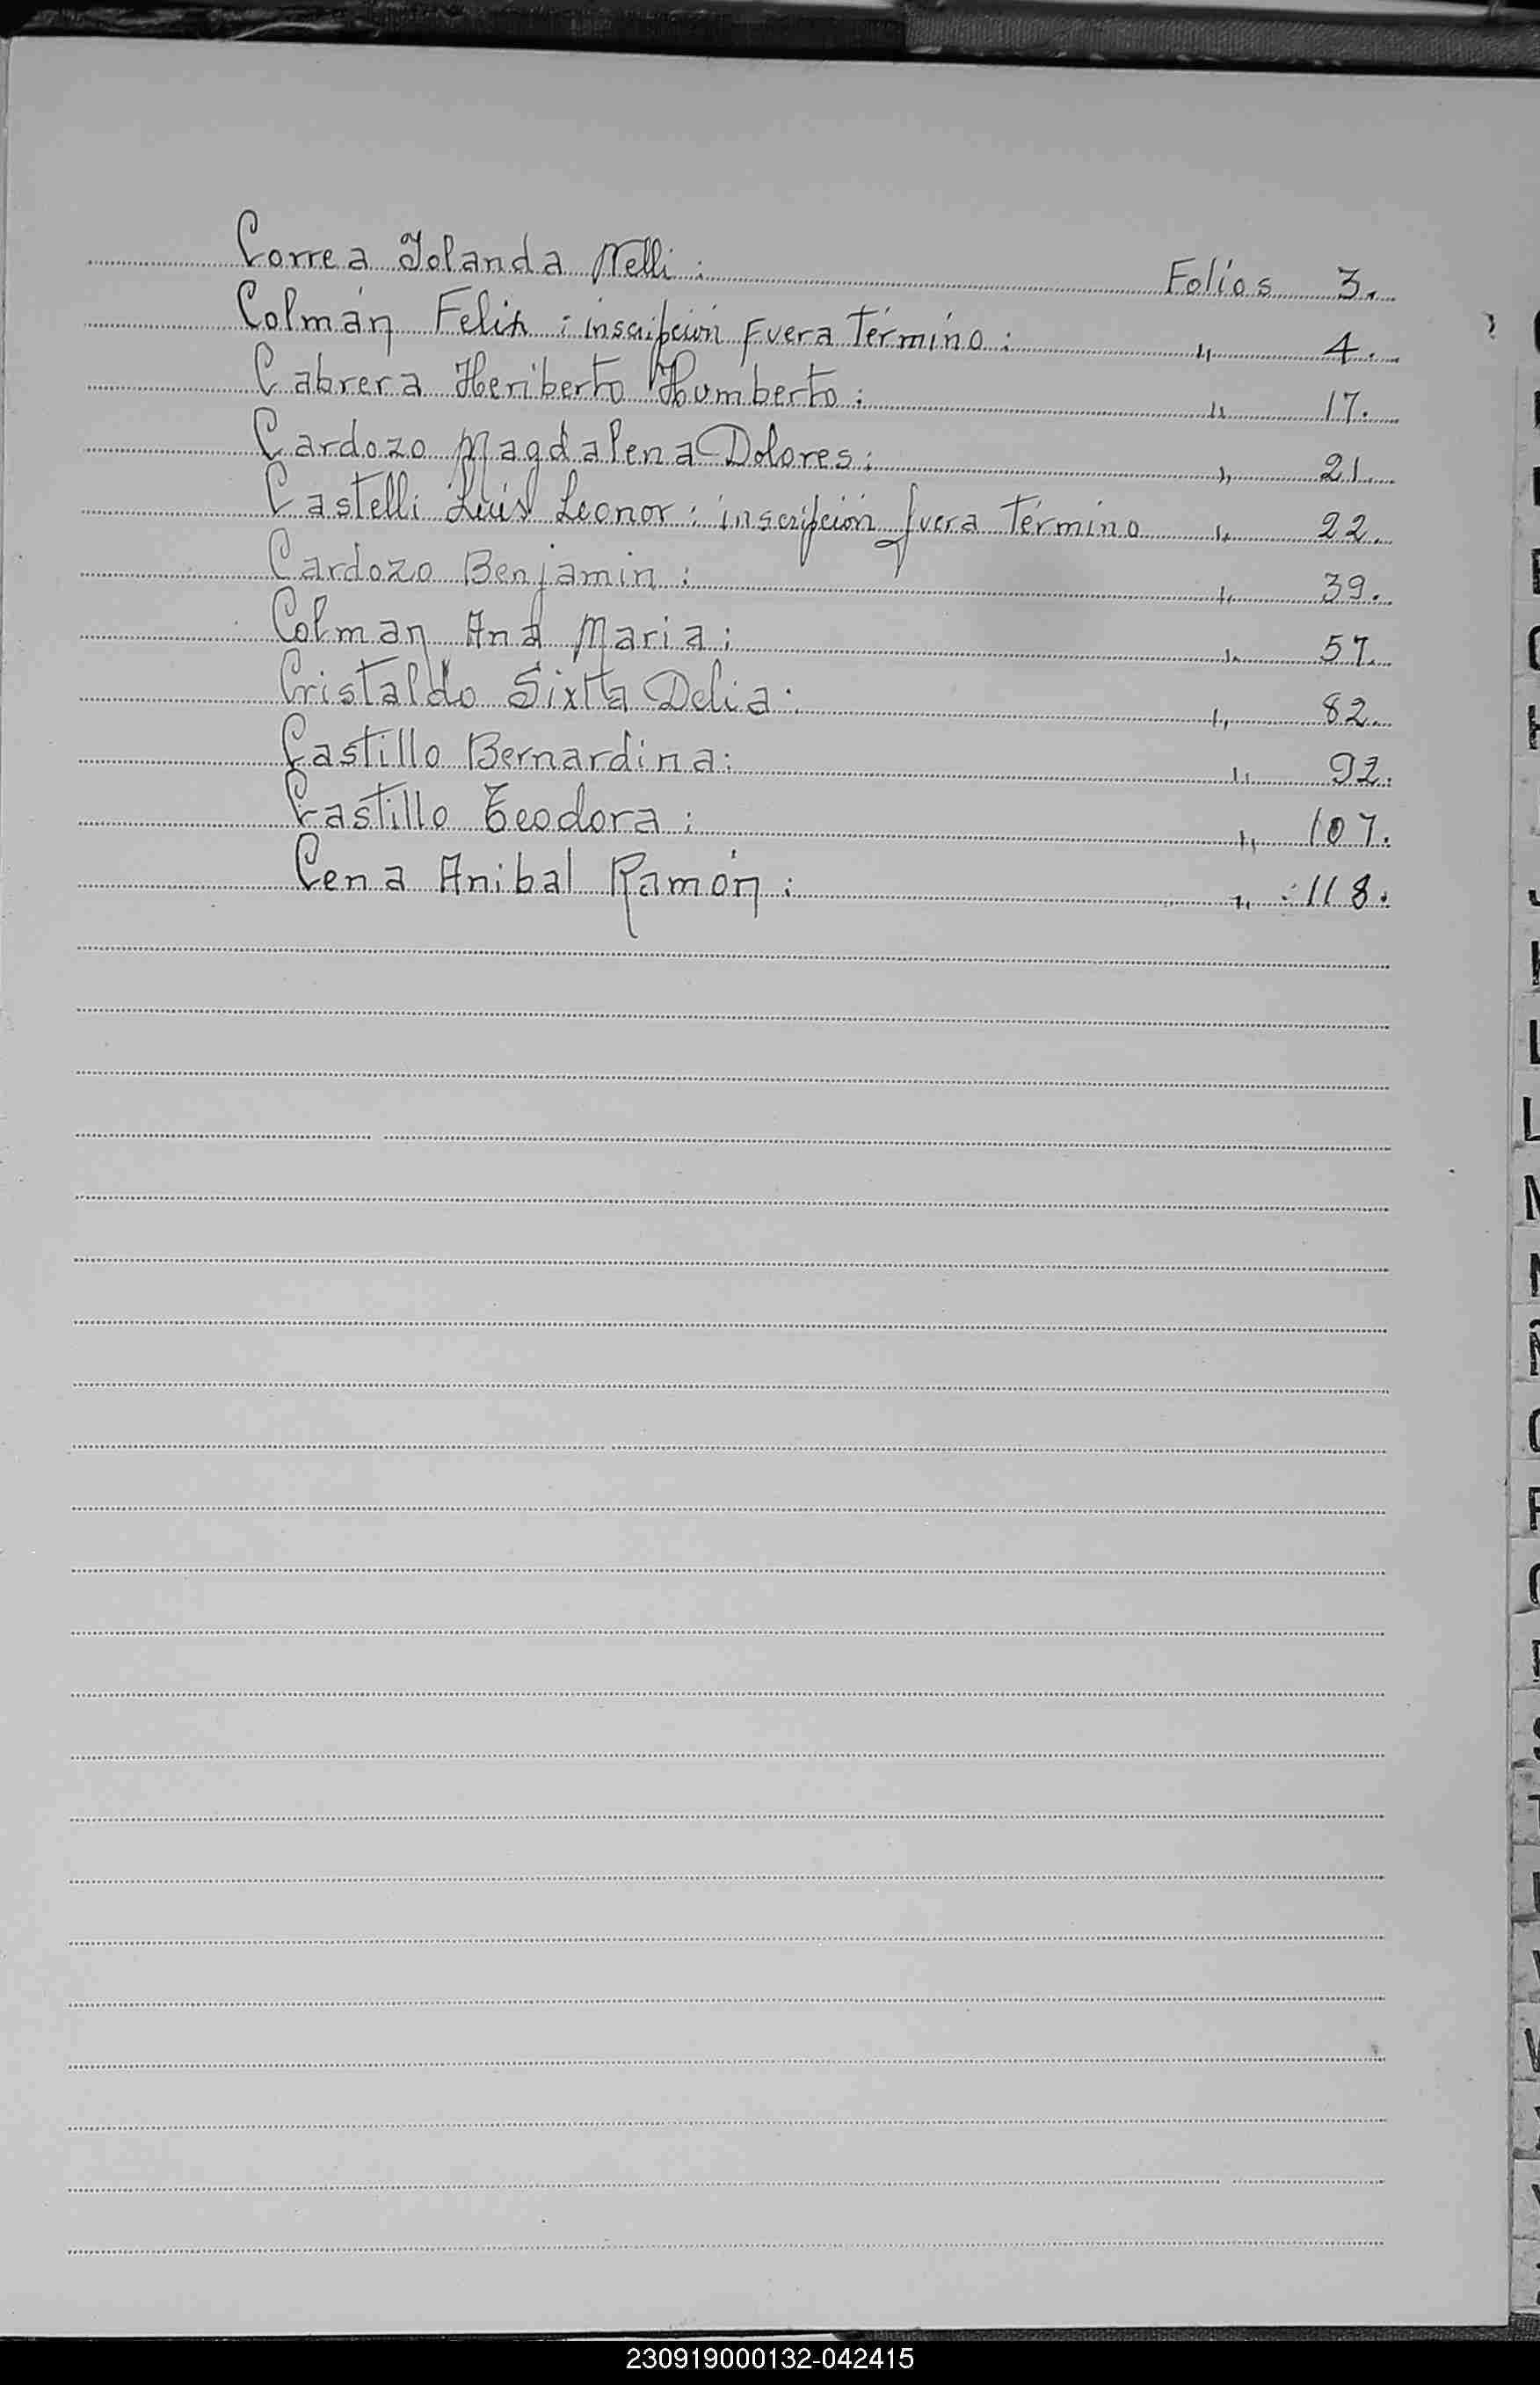 Correa Iolanda Nelli : Folios 3.
Colmán Felix : inscripción Fuera Término : " 4.
Cabrera Heriberto Humberto : " 17.
Cardozo Magdalena Dolores : " 21.
Castelli Luis Leonor : inscripción fuera Término " 22.
Cardozo Benjamin : " 39.
Colman Ana Maria : " 57.
Cristaldo Sixta Delia : " 82.
Castillo Bernardina : " 92.
Castillo Teodora : " 107.
Cena Anibal Ramón : " 118.
L
L
M
N
Ñ
S
230919000132-042415